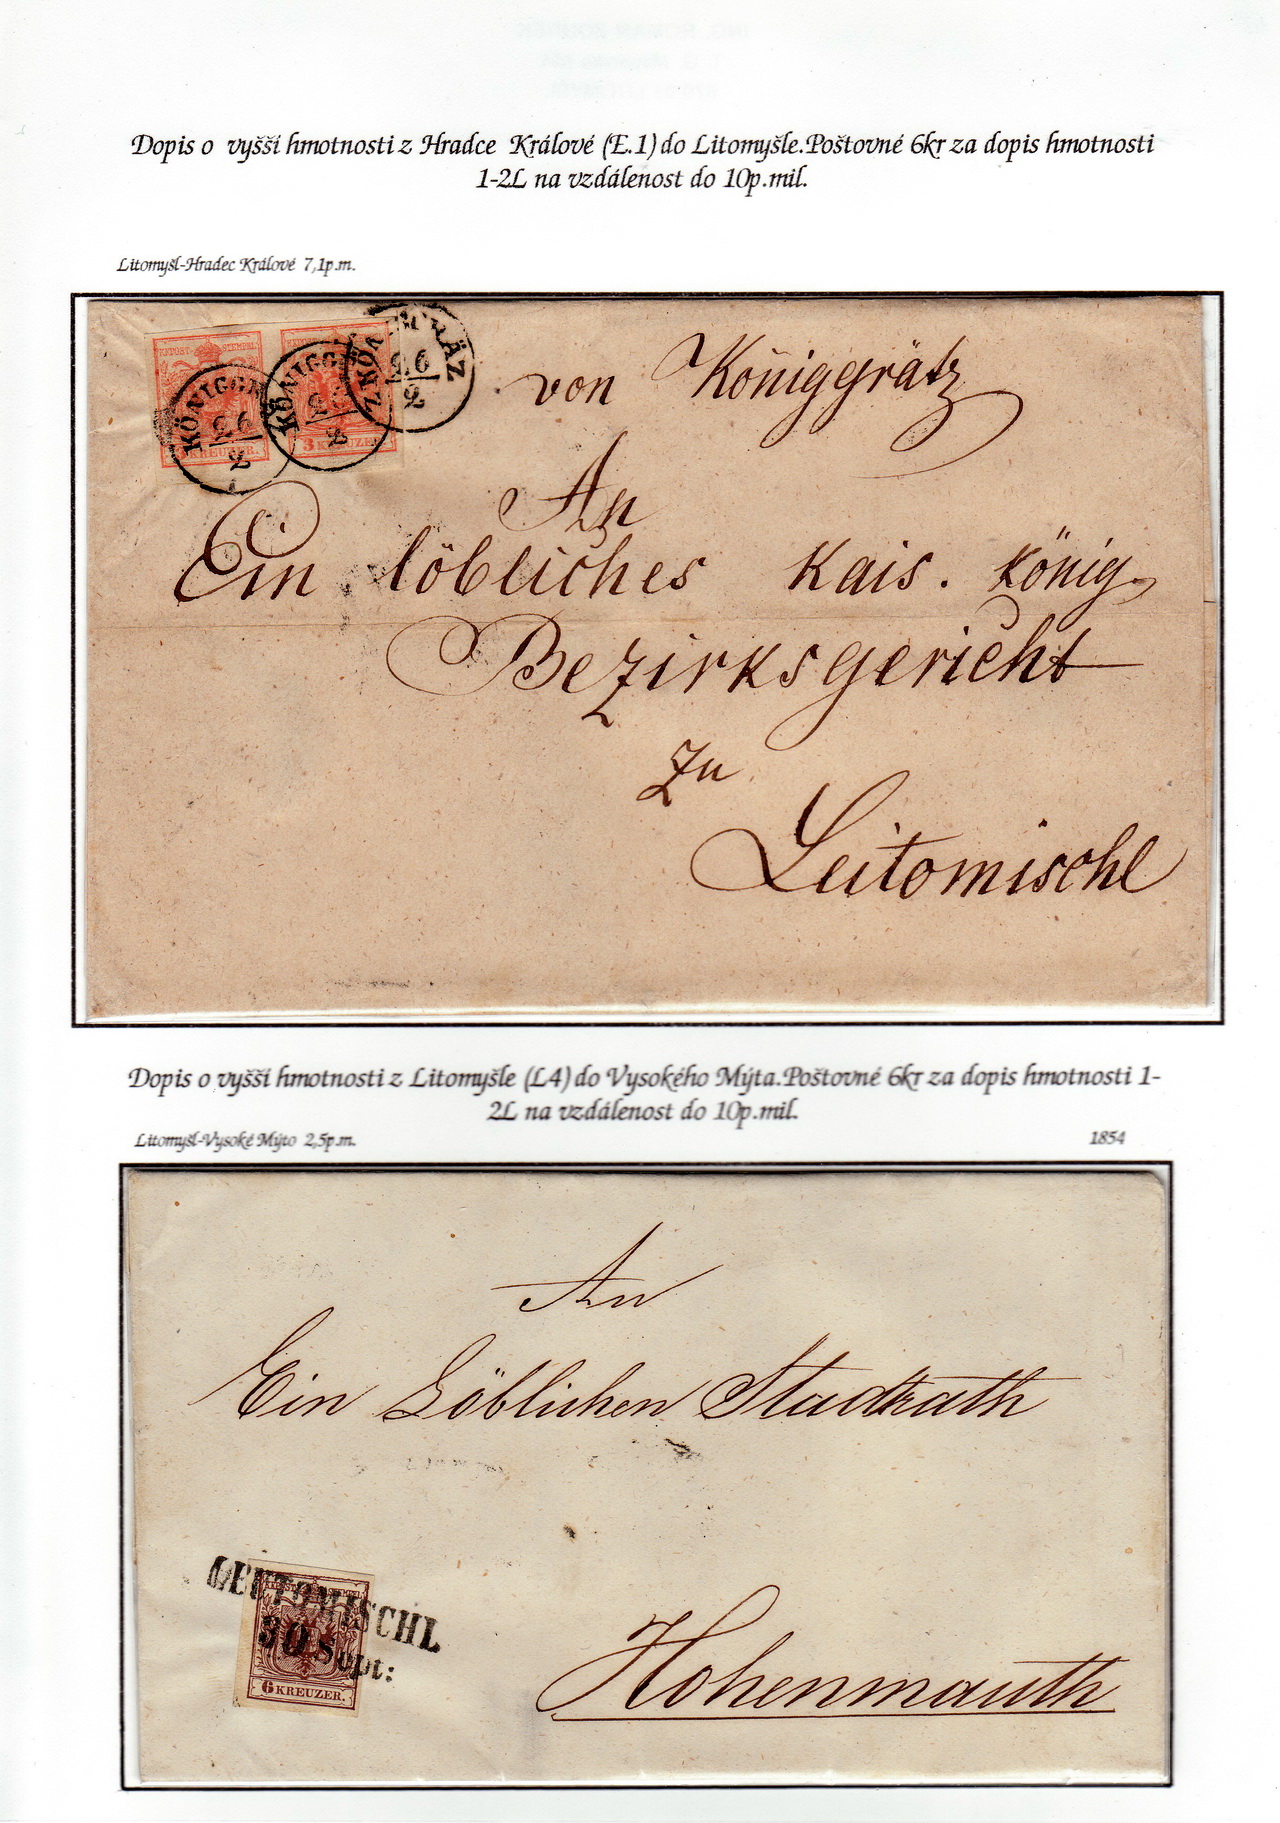 Dopis o vyšší hmotnosti z Hradce Králové (E.1) do Litomyšle.Poštovné 6kr za dopis hmotnosti
1-2L na vzdálenost do 10p.mil.
Litomyšl-Hradec Králové 7,1p.m.
KÖNIGGR
26
2
KÖNIGG
26
2
KÖN GRÄZ
26
2
KREUZER.
3 KREUZER.
von Königgrätz
An
Ein löbliches kais. könig.
Bezirksgericht
Zu
Leitomischl
Dopis o vyšší hmotnosti z Litomyšle (L4) do Vysokého Mýta.Poštovné 6kr za dopis hmotnosti 1-
2L na vzdálenost do 10p.mil.
Litomyšl-Vysoké Mýto 2,5p.m.
1854
An
Ein Löblichen Stadtrath
LEUTOMISCHL
30 Sept:
6 KREUZER.
Hohenmauth